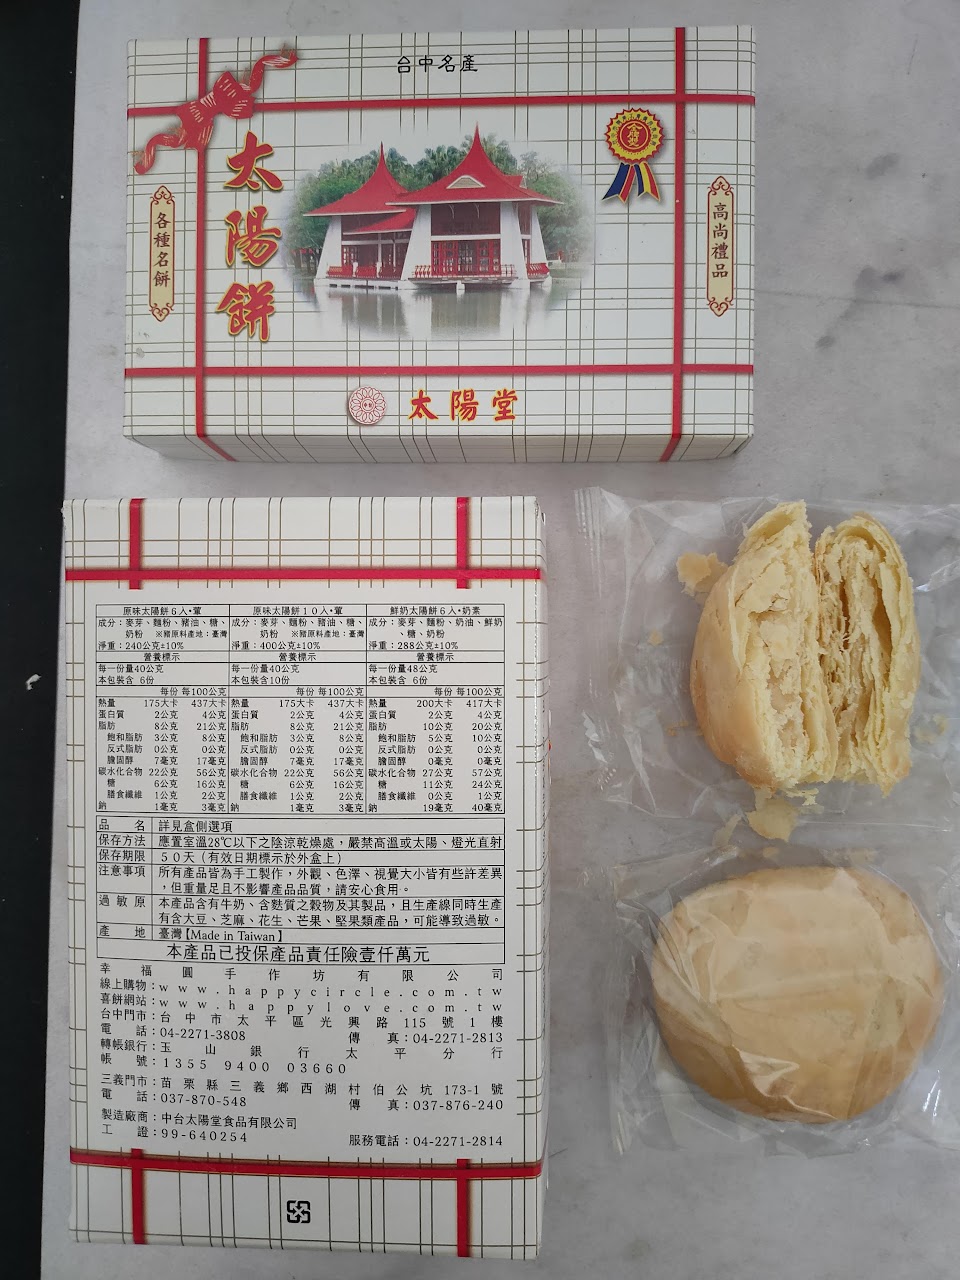 台中名產
太陽餅
各種名餅
高尚禮品
太陽堂
原味太陽餅6入・葷
成分：麥芽、麵粉、豬油、糖、
奶粉 ※豬原料產地：臺灣
淨重：240公克±10%
營養標示
每一份量40公克
本包裝含 6份
每份 每100公克
熱量 175大卡 437大卡
蛋白質 2公克 4公克
脂肪 8公克 21公克
飽和脂肪 3公克 8公克
反式脂肪 0公克 0公克
膽固醇 7毫克 17毫克
碳水化合物 22公克 56公克
糖 6公克 16公克
膳食纖維 1公克 2公克
鈉 1毫克 3毫克
原味太陽餅10入・葷
成分：麥芽、麵粉、豬油、糖、
奶粉 ※豬原料產地：臺灣
淨重：400公克±10%
營養標示
每一份量40公克
本包裝含10份
每份 每100公克
熱量 175大卡 437大卡
蛋白質 2公克 4公克
脂肪 8公克 21公克
飽和脂肪 3公克 8公克
反式脂肪 0公克 0公克
膽固醇 7毫克 17毫克
碳水化合物 22公克 56公克
糖 6公克 16公克
膳食纖維 1公克 2公克
鈉 1毫克 3毫克
鮮奶太陽餅6入・奶素
成分：麥芽、麵粉、奶油、鮮奶
、糖、奶粉
淨重：288公克±10%
營養標示
每一份量48公克
本包裝含 6份
每份 每100公克
熱量 200大卡 417大卡
蛋白質 2公克 4公克
脂肪 10公克 20公克
飽和脂肪 5公克 10公克
反式脂肪 0公克 0公克
膽固醇 0毫克 0毫克
碳水化合物 27公克 57公克
糖 11公克 24公克
膳食纖維 0公克 1公克
鈉 19毫克 40毫克
品名 詳見盒側選項
保存方法 應置室溫28℃以下之陰涼乾燥處，嚴禁高溫或太陽、燈光直射
保存期限 50天（有效日期標示於外盒上）
注意事項 所有產品皆為手工製作，外觀、色澤、視覺大小皆有些許差異
，但重量足且不影響產品品質，請安心食用。
過敏原 本產品含有牛奶、含麩質之穀物及其製品，且生產線同時生產
有含大豆、芝麻、花生、芒果、堅果類產品，可能導致過敏。
產地 臺灣【Made in Taiwan】
本產品已投保產品責任險壹仟萬元
幸福圓手作坊有限公司
線上購物：www.happycircle.com.tw
喜餅網站：www.happylove.com.tw
台中門市：台中市太平區光興路115號1樓
電話：04-2271-3808 傳真：04-2271-2813
轉帳銀行：玉山銀行太平分行
帳號：1355 9400 03660
三義門市：苗栗縣三義鄉西湖村伯公坑173-1號
電話：037-870-548 傳真：037-876-240
製造廠商：中台太陽堂食品有限公司
工證：99-640254 服務電話：04-2271-2814